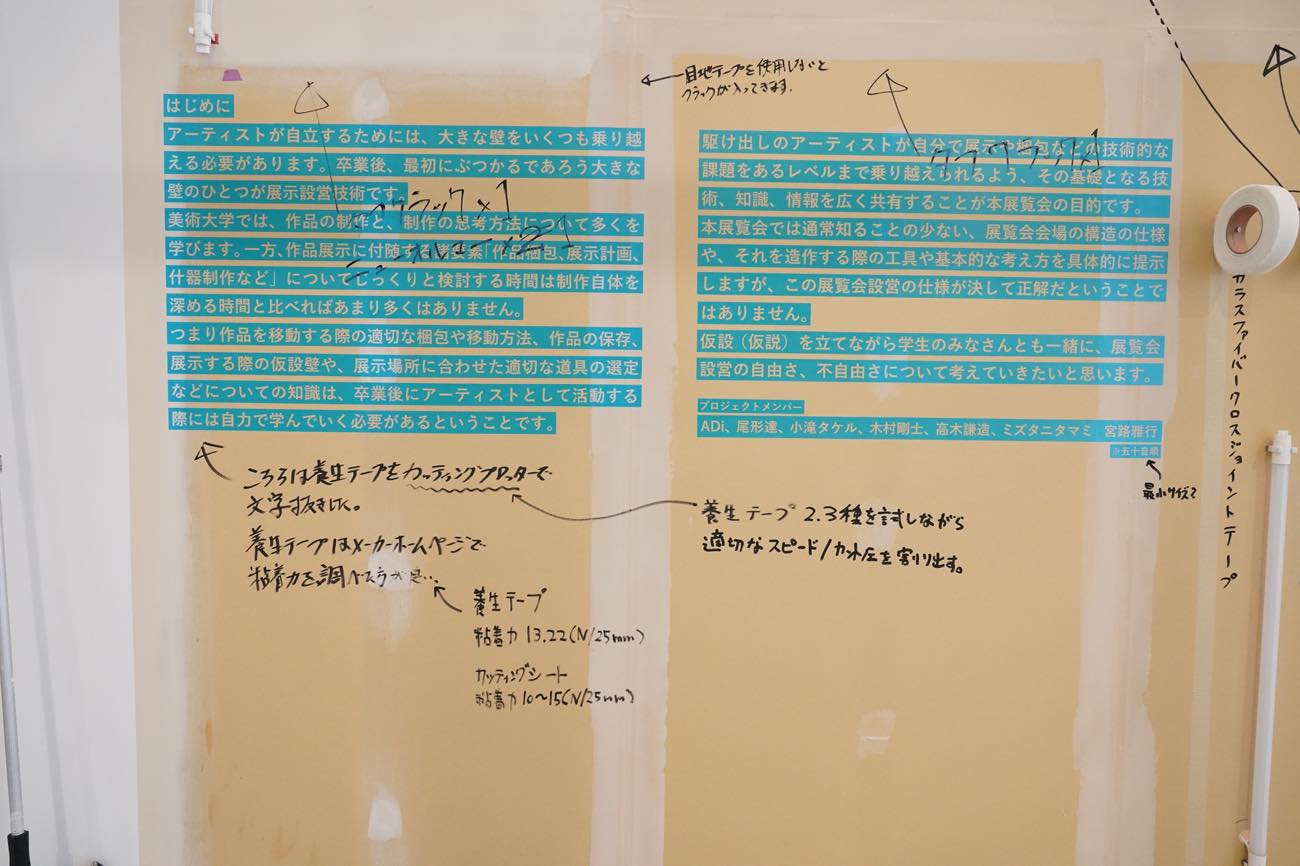 目地テープを使用しないと
クラックが入ってきます.
はじめに
アーティストが自立するためには、大きな壁をいくつも乗り越
える必要があります。卒業後、最初にぶつかるであろう大きな
壁のひとつが展示設営技術です。
美術大学では、作品の制作と、制作の思考方法について多くを
学びます。一方、作品展示に付随する 「作品梱包、展示計画、
什器制作など」についてじっくりと検討する時間は制作自体を
深める時間と比べればあまり多くはありません。
つまり作品を移動する際の適切な梱包や移動方法、作品の保存、
展示する際の仮設壁や、展示場所に合わせた適切な道具の選定
などについての知識は、卒業後にアーティストとして活動する
際には自力で学んでいく必要があるということです。
駆け出しのアーティストが自分で展示や梱包などの技術的な
課題をあるレベルまで乗り越えられるよう、その基礎となる技
術、知識、情報を広く共有することが本展覧会の目的です。
本展覧会では通常知ることの少ない、展覧会会場の構造の仕様
や、それを造作する際の工具や基本的な考え方を具体的に提示
しますが、この展覧会設営の仕様が決して正解だということで
はありません。
仮設（仮説）を立てながら学生のみなさんとも一緒に、展覧会
設営の自由さ、不自由さについて考えていきたいと思います。
プロジェクトメンバー
ADi、尾形達、小滝タケル、木村剛士、高木謙造、ミズタニタマミ 宮路雅行
※五十音順
最小サイズ?
クラック×1
ころろは養生テープをカッティングプロッターで
文字抜きした。
養生テープはメーカーホームページで
粘着力を調べた方が良…
養生テープ
粘着力 13.22(N/25mm)
カッティングシート
粘着力 10〜15(N/25mm)
養生テープ 2.3種を試しながら
適切なスピード/カット圧を割り出す。
ガラスファイバークロスジョイントテープ